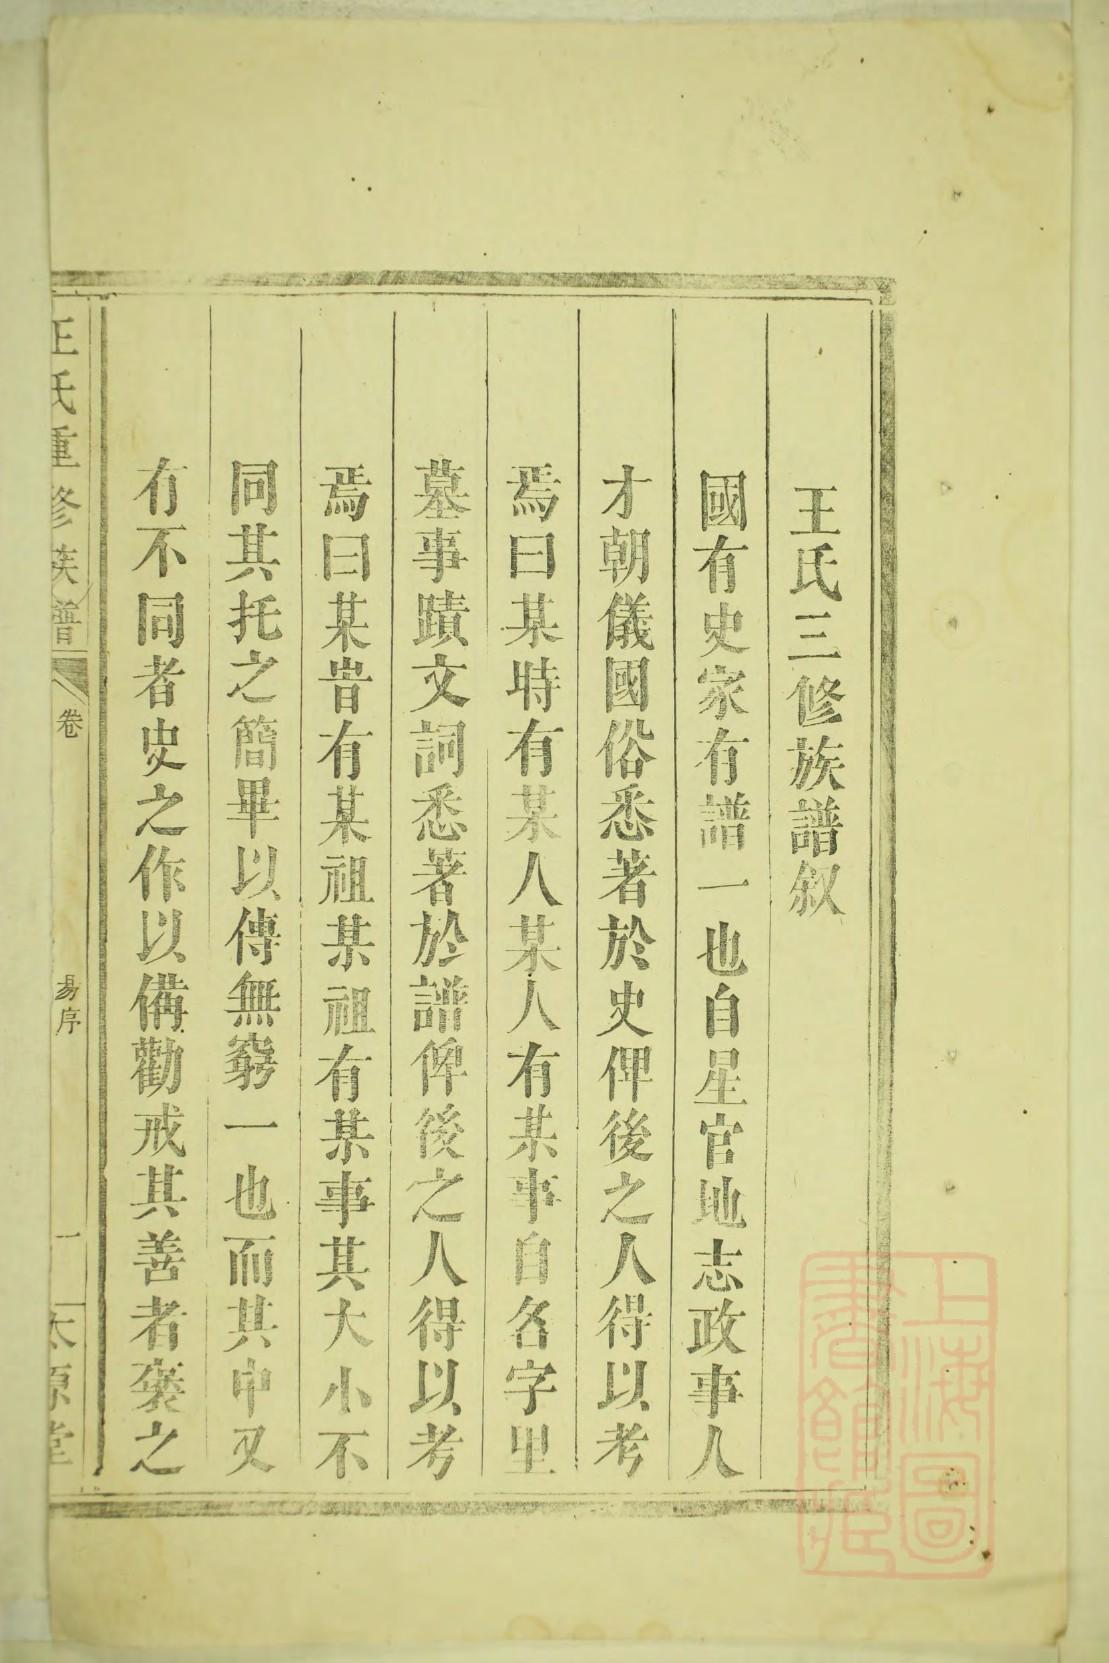 王氏三修族譜叙
國有史家有譜一也自星官地志政事人
才朝儀國俗悉著於史俾後之人得以考
焉曰某時有某人某人有某事自各字里
墓事蹟文詞悉著於譜俾後之人得以考
焉曰某旹有某祖某祖有某事其大小不
同其托之簡畢以傳無窮一也而其中又
有不同者史之作以備勸戒其善者褒之
王氏重修族譜
卷
易序
一
太原堂
上海圖
書館藏